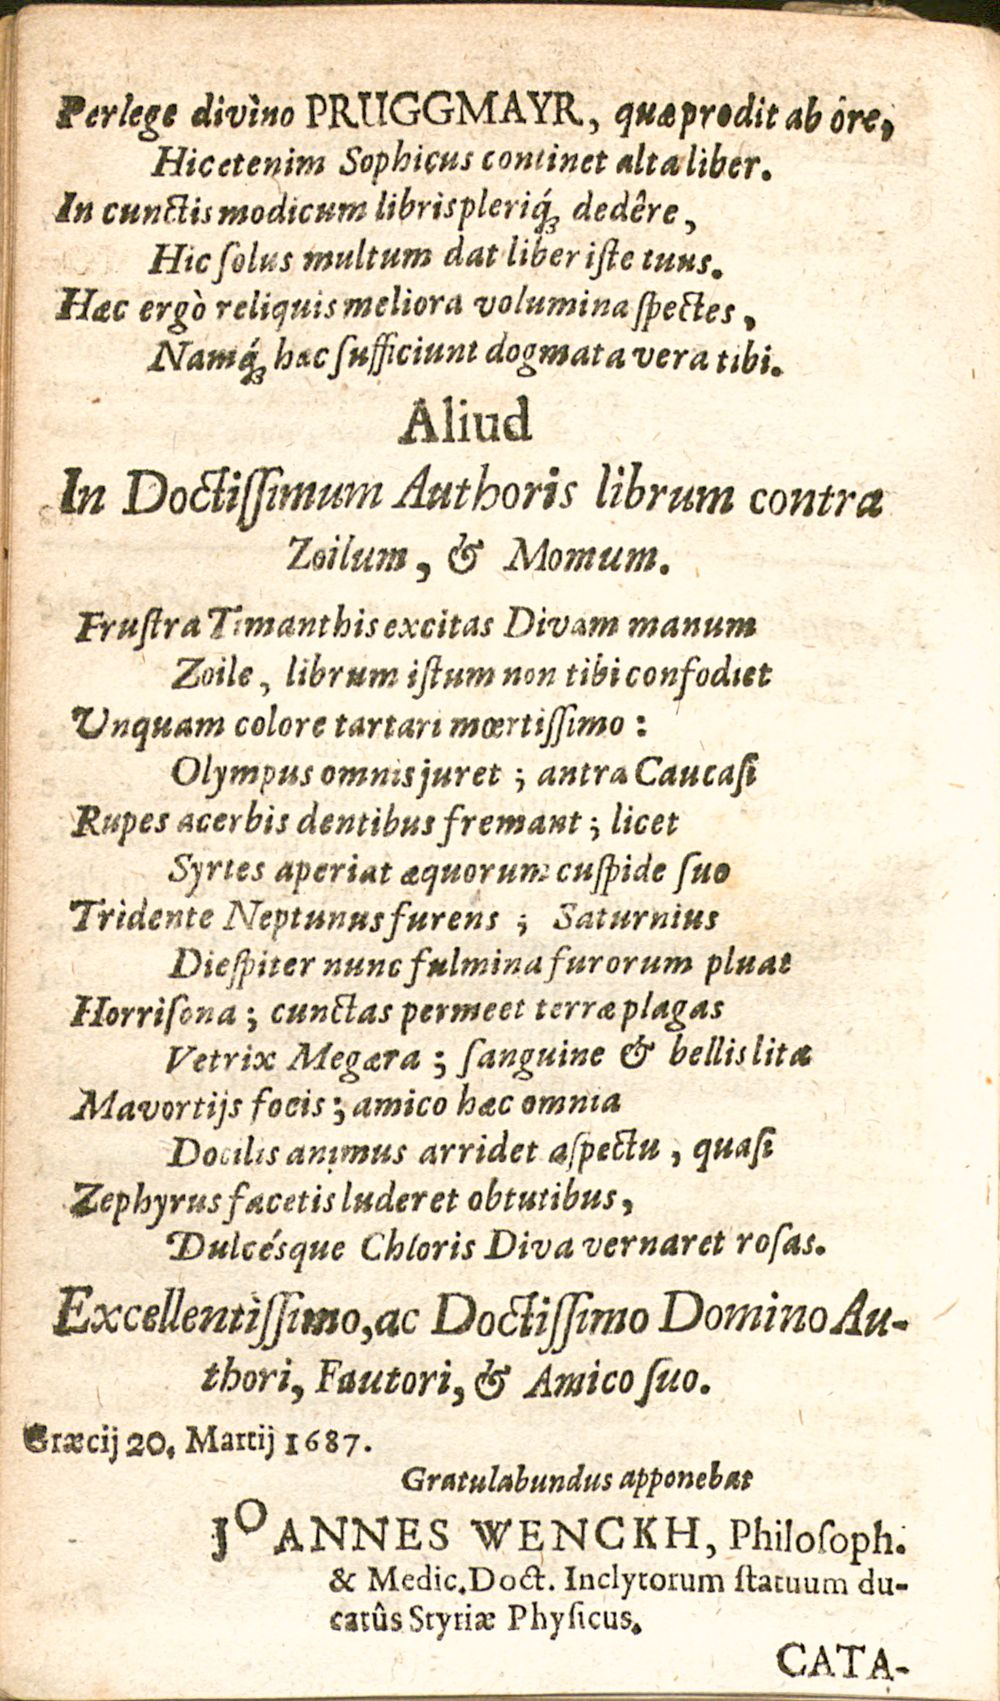 Perlege divìno PRUGGMAYR, quæ prodit ab ôre,
Hic etenim Sophicus continet alta liber.
In cunctis modicum libris pleriq́ꝫ dedêre,
Hic ſolus multum dat liber iſte tuus.
Hæc ergò reliquis meliora volumina ſpectes,
Namq́ꝫ hæc ſufficiunt dogmata vera tibi.
Aliud
In Doctiſſimum Authoris librum contra
Zoilum, & Momum.
Fruſtra Timanthis excitas Divam manum
Zoile, librum iſtum non tibi confodiet
Unquam colore tartari mœrtiſſimo:
Olympus omnis juret; antra Caucaſi
Rupes acerbis dentibus fremant; licet
Syrtes aperiat æquorum cuſpide ſuo
Tridente Neptunus furens; Saturnius
Dieſpiter nunc fulmina furorum pluat
Horriſona; cunctas permeet terræ plagas
Vetrix Megæra; ſanguine & bellis litæ
Mavortijs focis; amico hæc omnia
Docilis animus arridet aſpectu, quaſi
Zephyrus facetis luderet obtutibus,
Dulcésque Chloris Diva vernaret roſas.
Excellentìſſimo, ac Doctiſſimo Domino Au-
thori, Fautori, & Amico ſuo.
Græcij 20. Martij 1687.
Gratulabundus apponebat
JOANNES WENCKH, Philoſoph.
& Medic. Doct. Inclytorum ſtatuum du-
catûs Styriæ Phyſicus.
CATA-